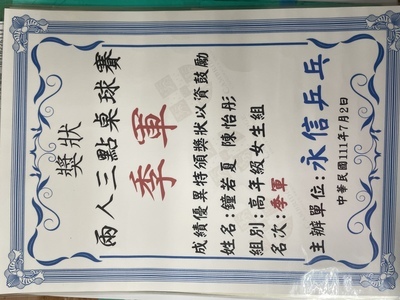 獎狀
兩人三點桌球賽
季軍
成績優異特頒獎狀以資鼓勵
姓名:鐘若夏 陳怡彤
組別:高年級女生組
名次:季軍
主辦單位:永信乒乓
中華民國111年7月2日